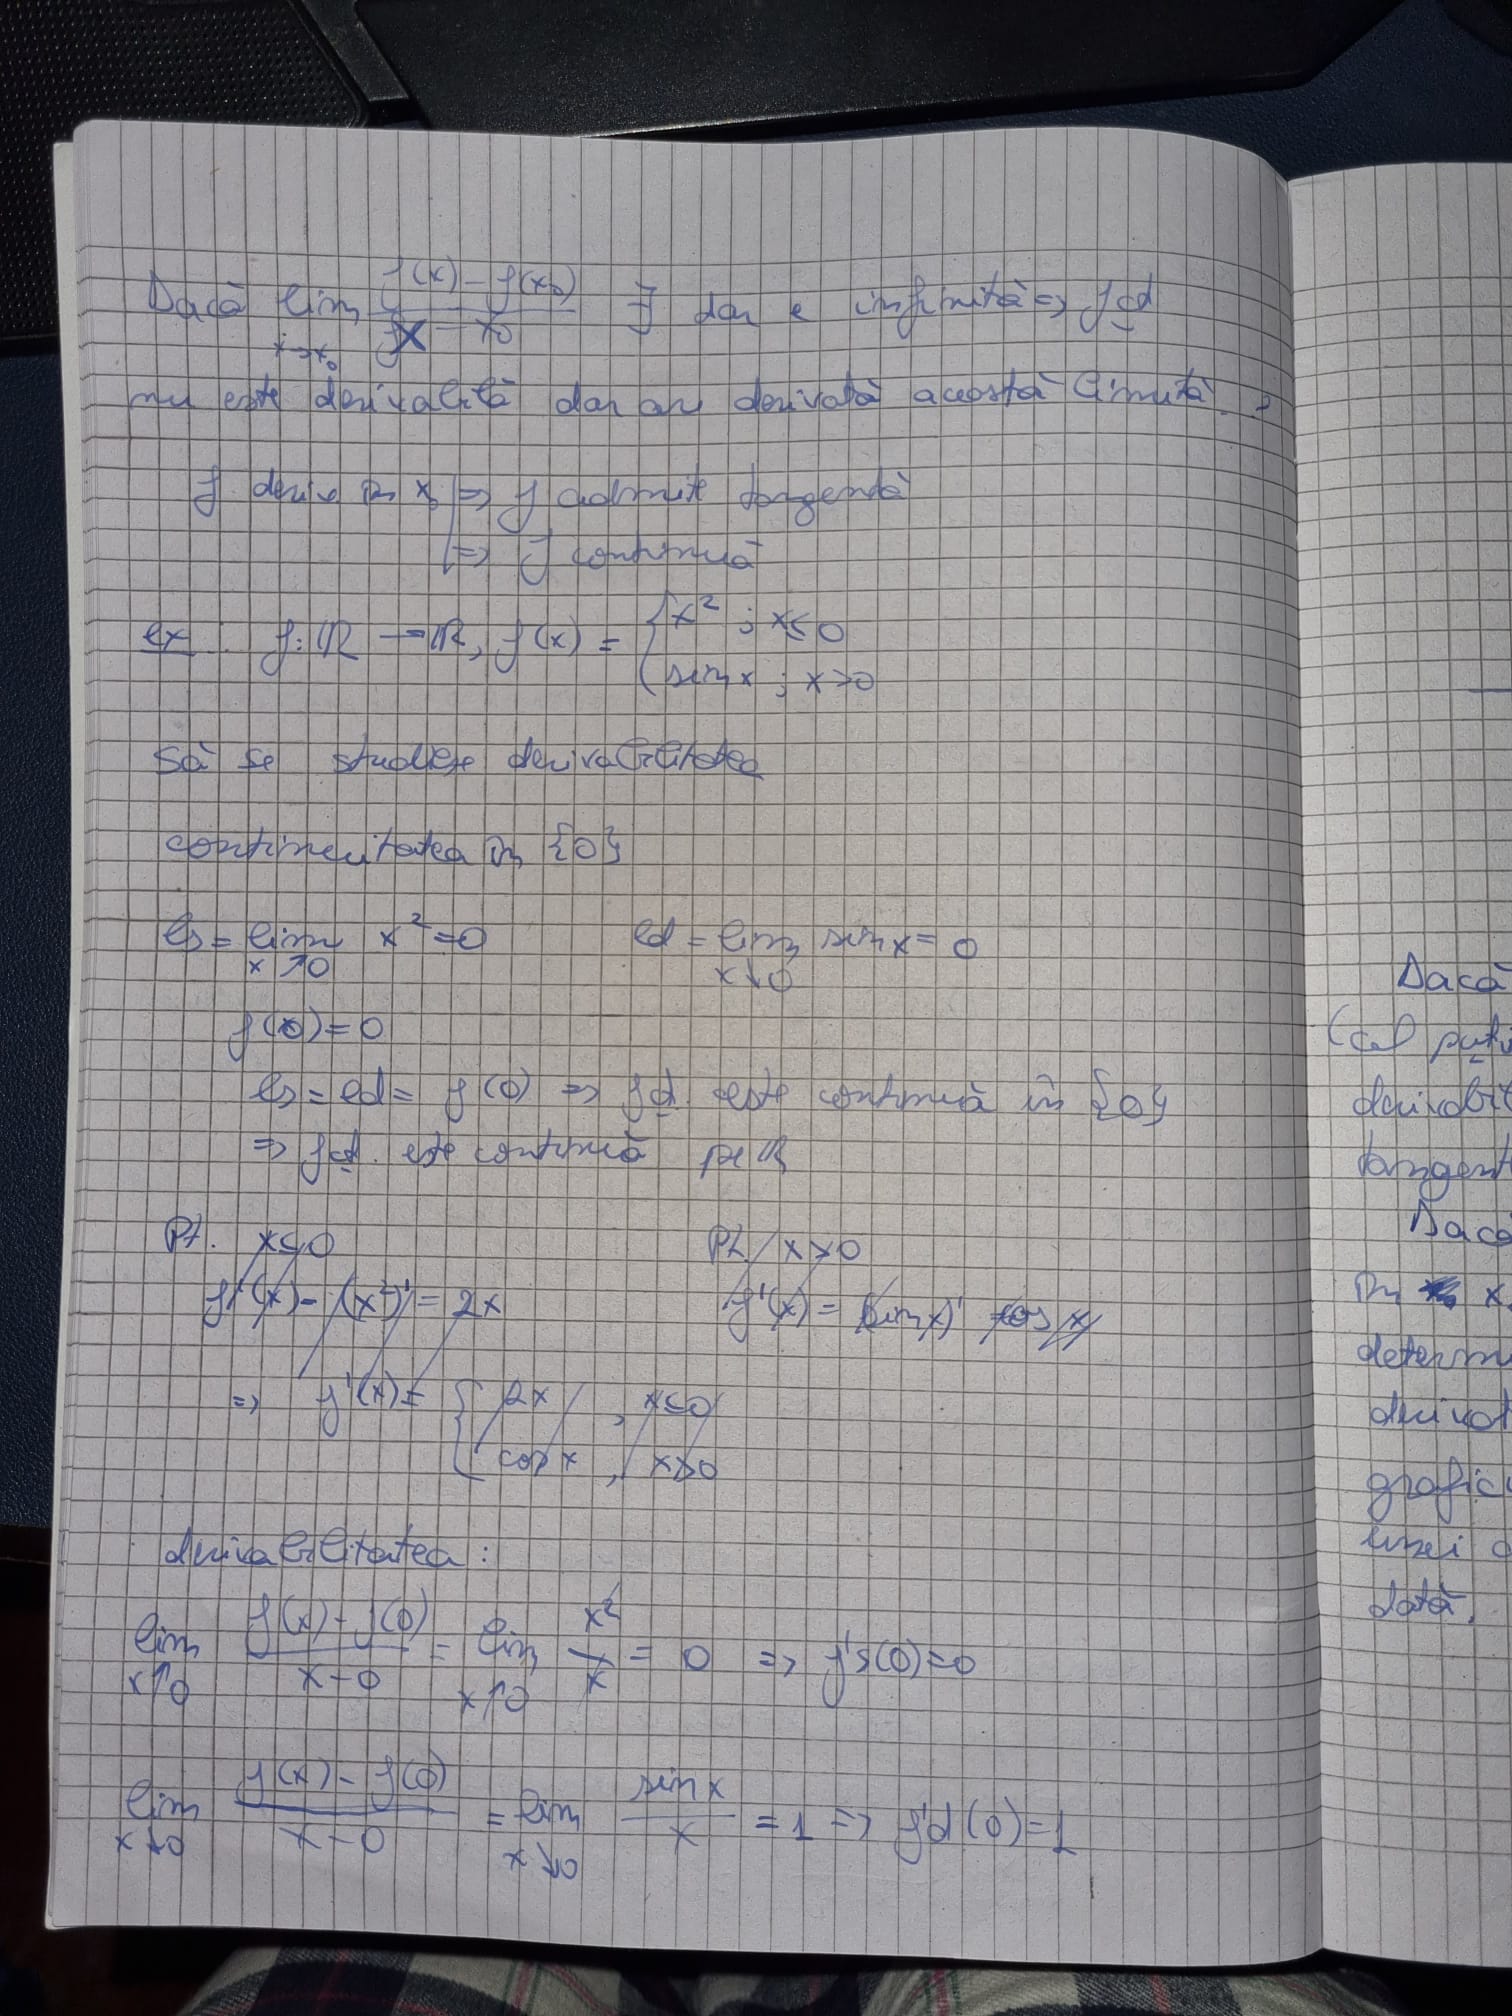 Dacă lim x→x₀ (f(x) - f(x₀))/(x - x₀) ∃ dar e infinită => fcț
nu este derivabilă dar are derivată această limită.
f deriv în x₀ => f admite tangentă
=> f continuă
ex. f: ℝ → ℝ, f(x) = { x² ; x ≤ 0
sin x ; x > 0
Să se studieze derivabilitatea
continuitatea în {0}
ls = lim x↗0 x² = 0 ld = lim x↘0 sin x = 0
f(0) = 0
ls = ld = f(0) => fcț. este continuă în {0}
=> fcț. este continuă pe ℝ
Pt. x ≤ 0 Pt. x > 0
f'(x) = (x²)' = 2x f'(x) = (sin x)' cos x
=> f'(x) = { 2x , x ≤ 0
cos x , x > 0
derivabilitatea:
lim x↑0 (f(x) - f(0))/(x - 0) = lim x↑0 x²/x = 0 => f's(0) = 0
lim x↘0 (f(x) - f(0))/(x - 0) = lim x↘0 sin x/x = 1 => f'd(0) = 1
Dacă
(cel puți
derivabil
tangent
Dacă
în x
determin
derivat
grafic
unei
dată.